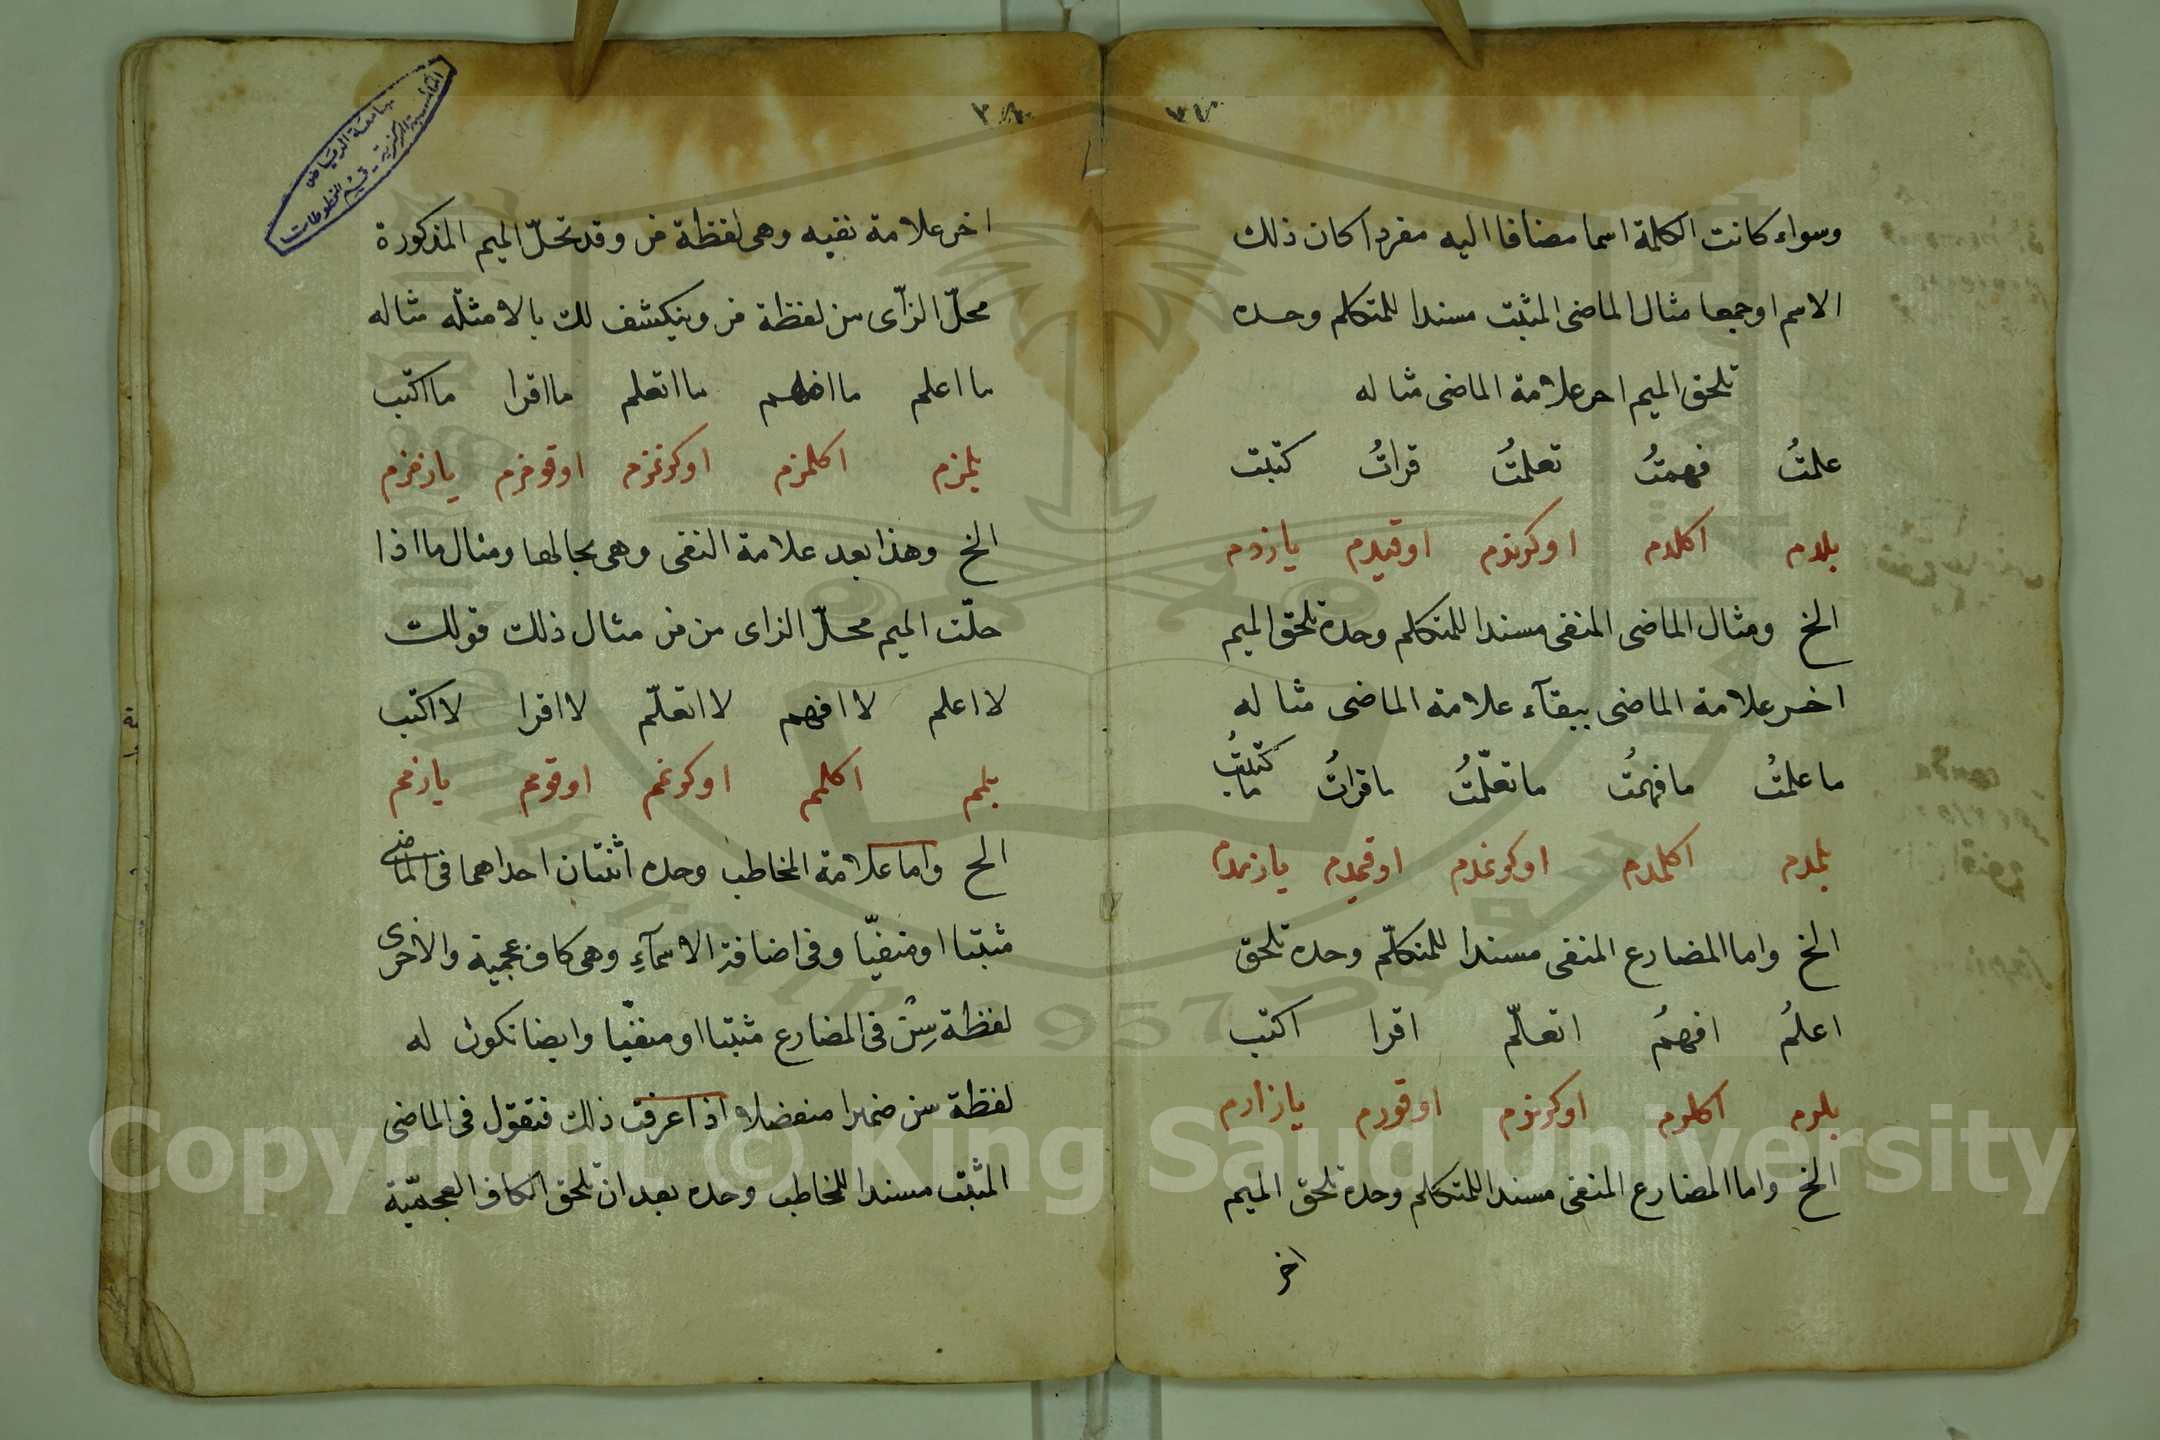 وسواء كانت الكلمة اسما مضافا اليه مفردا كان ذلك
الاسم او جمعا مثال الماضى المثبت مسندا للمتكلم وحده
تلحق الميم اخر علامة الماضى مثاله
علمتُ فهمتُ تعلمتُ قراتُ كتبت
بلدم اكلدم اوكرندم اوقيدم يازدم
الخ ومثال الماضى المنفى مسندا للمتكلم وحده تلحق الميم
اخر علامة الماضى ببقآء علامة الماضى مثاله
ما علمتُ ما فهمتُ ما تعلّمتُ ما قراتُ ما كتبتُ
بلمدم اكلمدم اوكرنمدم اوقمدم يازمدم
الخ واما المضارع المنفى مسندا للمتكلّم وحده تلحق
اعلمُ افهمُ اتعلّم اقرا اكتب
بلرم اكلرم اوكرنرم اوقورم يازارم
الخ واما المضارع المنفى مسندا للمتكلم وحده تلحق الميم
اخر
اخر علامة نفيه وهى لفظة مز وقد تحلّ الميم المذكورة
محلّ الزآى من لفظة مز وينكشف لك بالامثلة مثاله
ما اعلم ما افهم ما اتعلم ما اقرا ما اكتب
بلمزم اكلمزم اوكرنمزم اوقومزم يازمزم
الخ وهذا بعد علامة النفى وهى بحالها ومثال ما اذا
حلّت الميم محلّ الزاى من مز مثال ذلك قولك
لا اعلم لا افهم لا اتعلّم لا اقرا لا اكتب
بلمم اكلمم اوكرنمم اوقومم يازمم
الخ واما علامة المخاطب وحده اثنتان احداهما فى الماضى
مثبتا او منفيّا وفى اضافة الاسمآءِ وهى كاف عجمية والاخرى
لفظة سِنْ فى المضارع مثبتا او منفيّا وايضا تكون له
لفظة سن ضميرا منفصلا اذا عرفت ذلك فتقول فى الماضى
المثبت مسندا للمخاطب وحده بعد ان تلحق الكاف العجميّة
جامعة الرياض
المكتبة المركزية - قسم المخطوطات
Copyright © King Saud University
1957